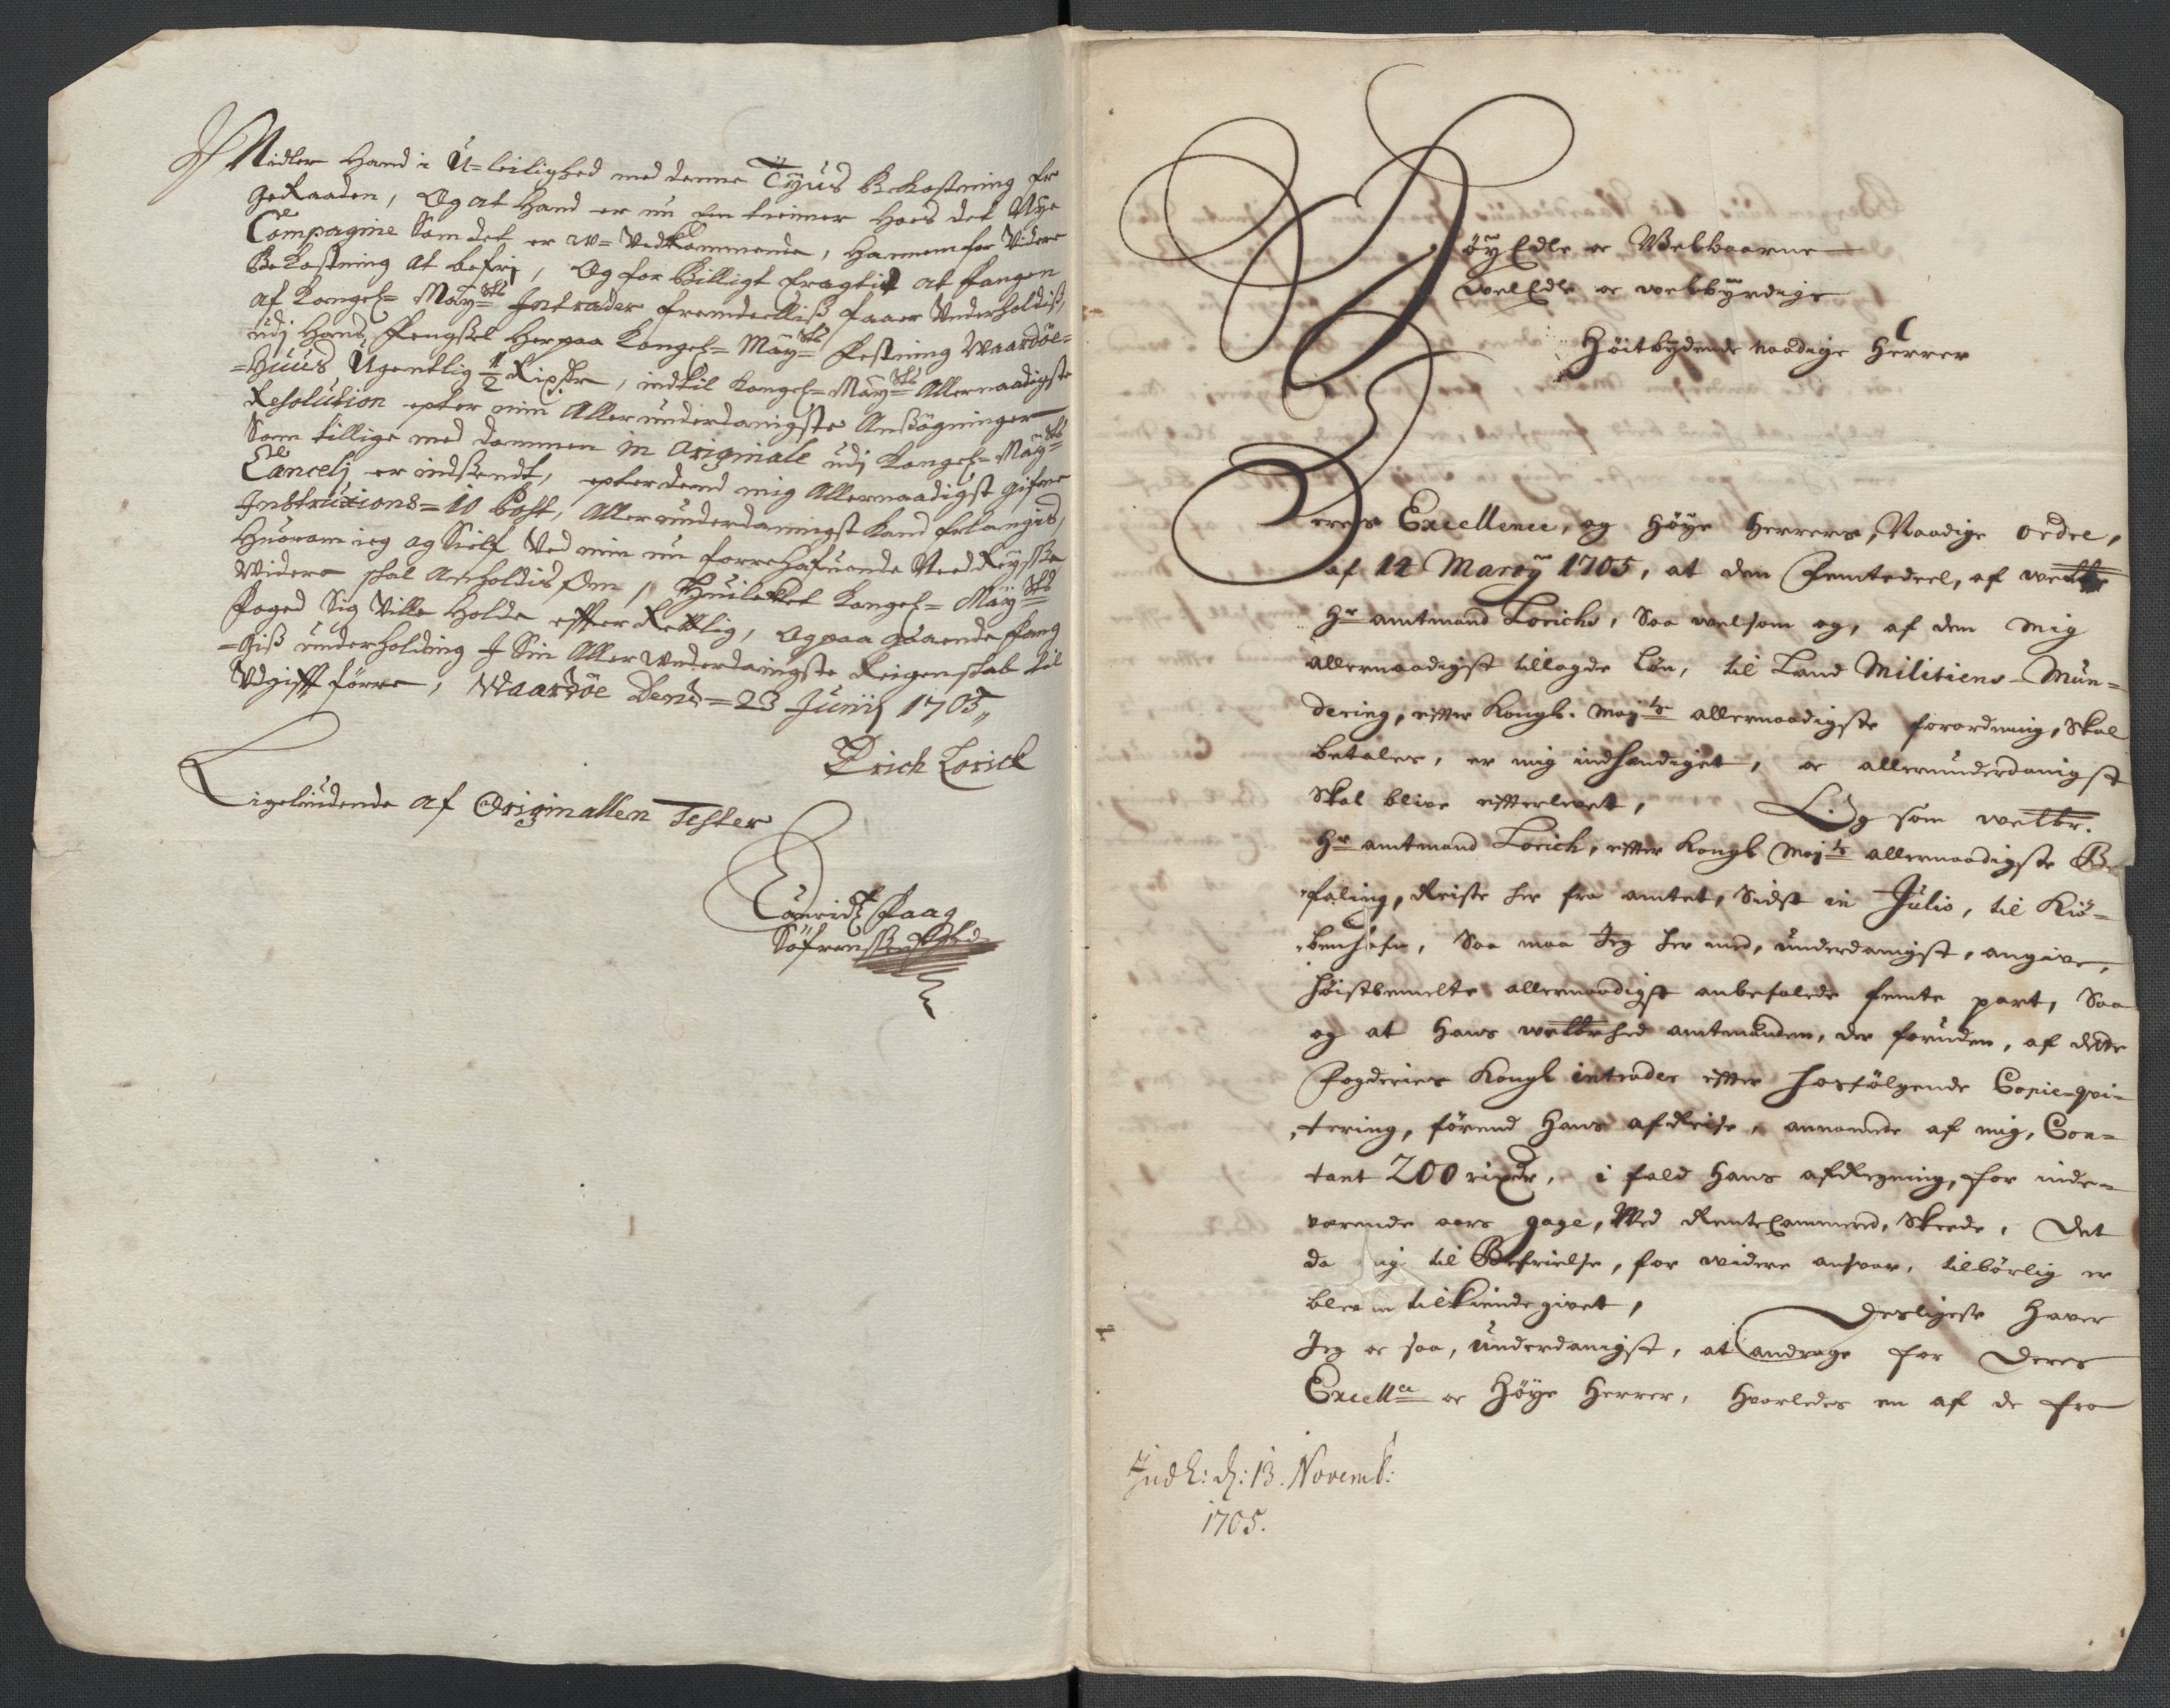 Midler Hand i U=leilighed med denne Tyus Bekostning er
geRaaden, Og at Hand er nu een tienner Hoes det Nÿe
Compagnie Som det er w= Vedkommende, Hannem for Videre
Bekostning at befri, Og for Billigt Eragtid at fangen
af Kongel= Maÿ=sts Intrader fremdeelliß faaer Underholdiß,
udj Hans Fengßel Her paa Kongel= Maÿ=sts Festning Waardöe=
=Huus Ugentlig 1/2 Rixdlr, indtil Kongel= Maÿ=sts Allernaadigste
Resolution epter min Allerunderdanigste Ansögninger
Som tillige med dommen in Originale udj Kongel= Maÿ=sts
Cancelj er indßendt, epter dend mig Allernaadigst gifne
Instruxions= 10 Post, Allerunderdannigst Kand Erlangis,
Huorom ieg og Sielf Ved min nu forrehafuende Need Reyße
Widere skal Anholdis om, Huilcket Kongel= Maÿ=sts
Foged Sig Ville Holde efter Rettlig, Og paa gaaende fang
=giß underholding I Sin Aller Underdanigste Reigenskab til
Udgifft förre, Waardöe Dend= 23 Junij 1705,,
Erich Lorick
Ligeliudende af Originallen Tester
Söfrenß
Höÿ Edle oc Welbaarne
WelEdle oc welbÿrdige
Höitbydende naadige Herrer
Deris Excellence, og Höye Herrers, Naadige ordre,
af 14 Martÿ 1705, at den Femtedeel, af welbr
Hr amtmand Lorichs, Saa velsom og, af den mig
allernaadigst tillagde Løn, til Land Militiens-Mun=
dering, effter Kongl. Maÿts allernaadigste forordning, Skal
betales, er mig indhændiget, oc allerunderdanigst
Skal blive effterlevet, Og som welbr.
Hr amtmand Lorich, effter Kongl Maÿts allernaadigste Be
faling, Reiste her fra amtet, Sidst in Julio, til Kiö=
benhafn, Saa maa Jeg her med, underdanigst, angive,
höistbemelte allernaadigst anbefalede femte part, Saa
og at Hans welbrhed amtmanden, der foruden, af dette
Fogderies Kongl intrader effter hosfölgende Copie-qvi=
tering, förend Hans afReise, annammede af mig, Con=
tant 200 rixdr, i fald Hans afRegning, for inde=
værende aars gage, Wed RenteCammered, Skeede, Det
da mig til Befrielse, for widere ansvar, tilbörlig er
bleven tilkiende givet, Desligeste haver
Jeg oc saa, underdanigst, at andrage for Deres
Excellce oc Höye Herrer, Hvorledes en af de fra
Indl: d: 13. Novemb:
1705.